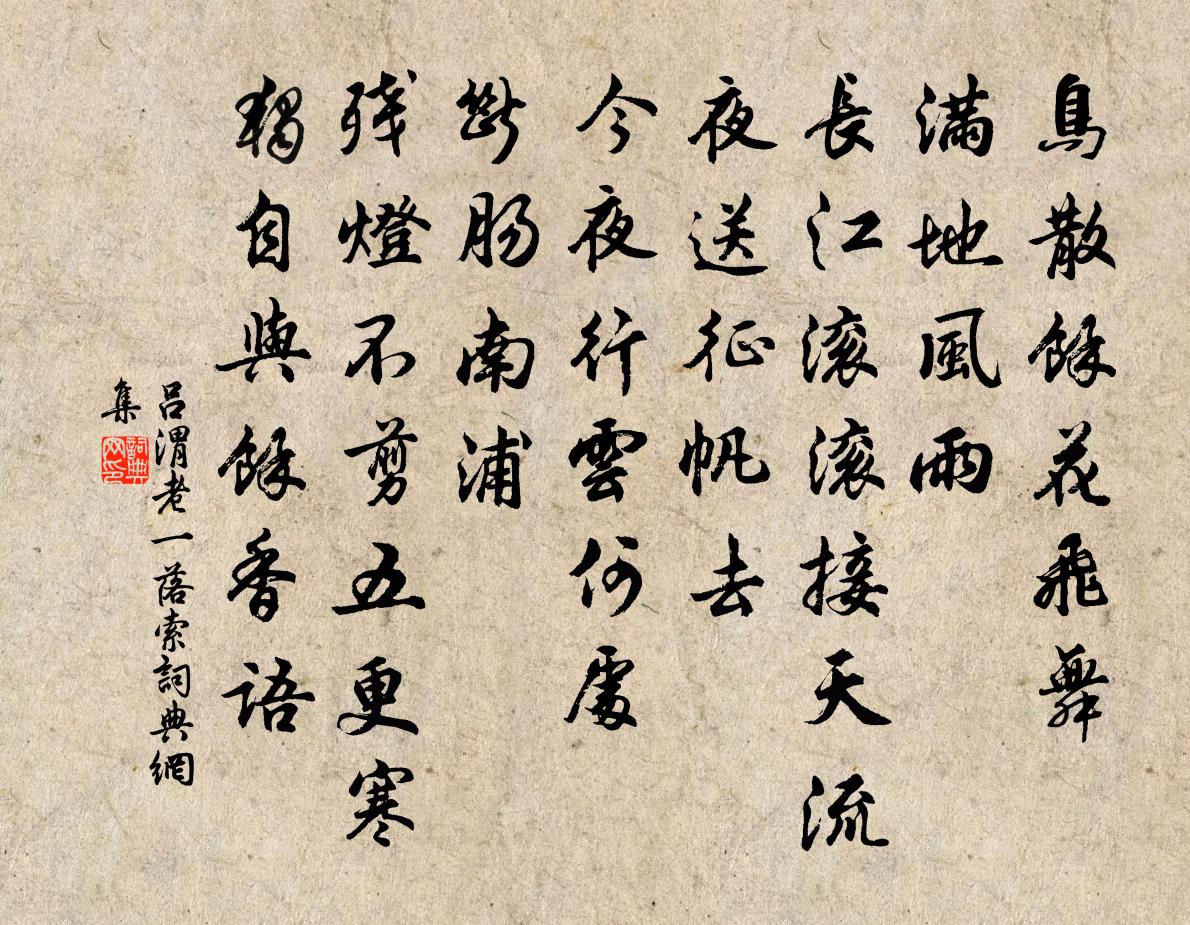 鳥散餘花飛舞
滿地風雨
長江滾滾接天流
夜送征帆去
今夜行雲何處
斷腸南浦
殘燈不剪五更寒
獨自與餘香語
吕渭老一落索詞典網
集
詞典
网印